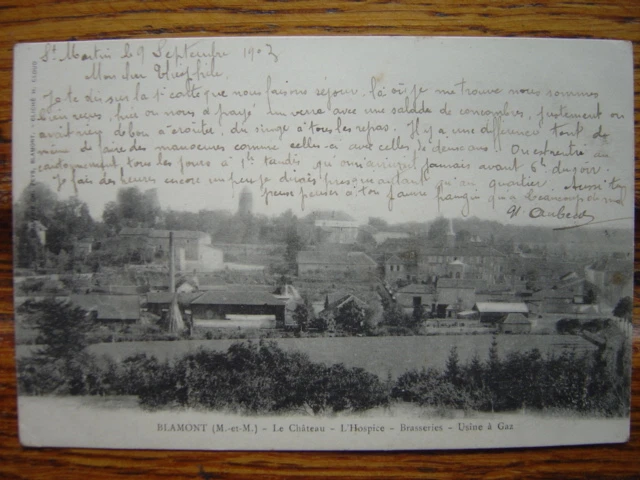 St Martin le 9 Septembre 1903
Mon cher Théophile,
Je te dis sur la 1re carte que nous faisons séjour, là où je me trouve nous sommes
bien reçus, hier on nous a payé un verre avec une salade de concombres, justement on
avait rien de bon à croûter, du singe à tous les repas. Il y a une différence tout de
même de faire des manoeuvres comme celles-ci avec celles de deux ans. On est rentré au
cantonnement tous les jours à 1h tandis qu'on n'arrivait jamais avant 6h du soir.
Je fais des heures encore un peu je dirais presque autant qu'au quartier. Aussi tu
peux penser à ton
BLAMONT (M.-et-M.) - Le Château - L'Hospice - Brasseries - Usine à Gaz